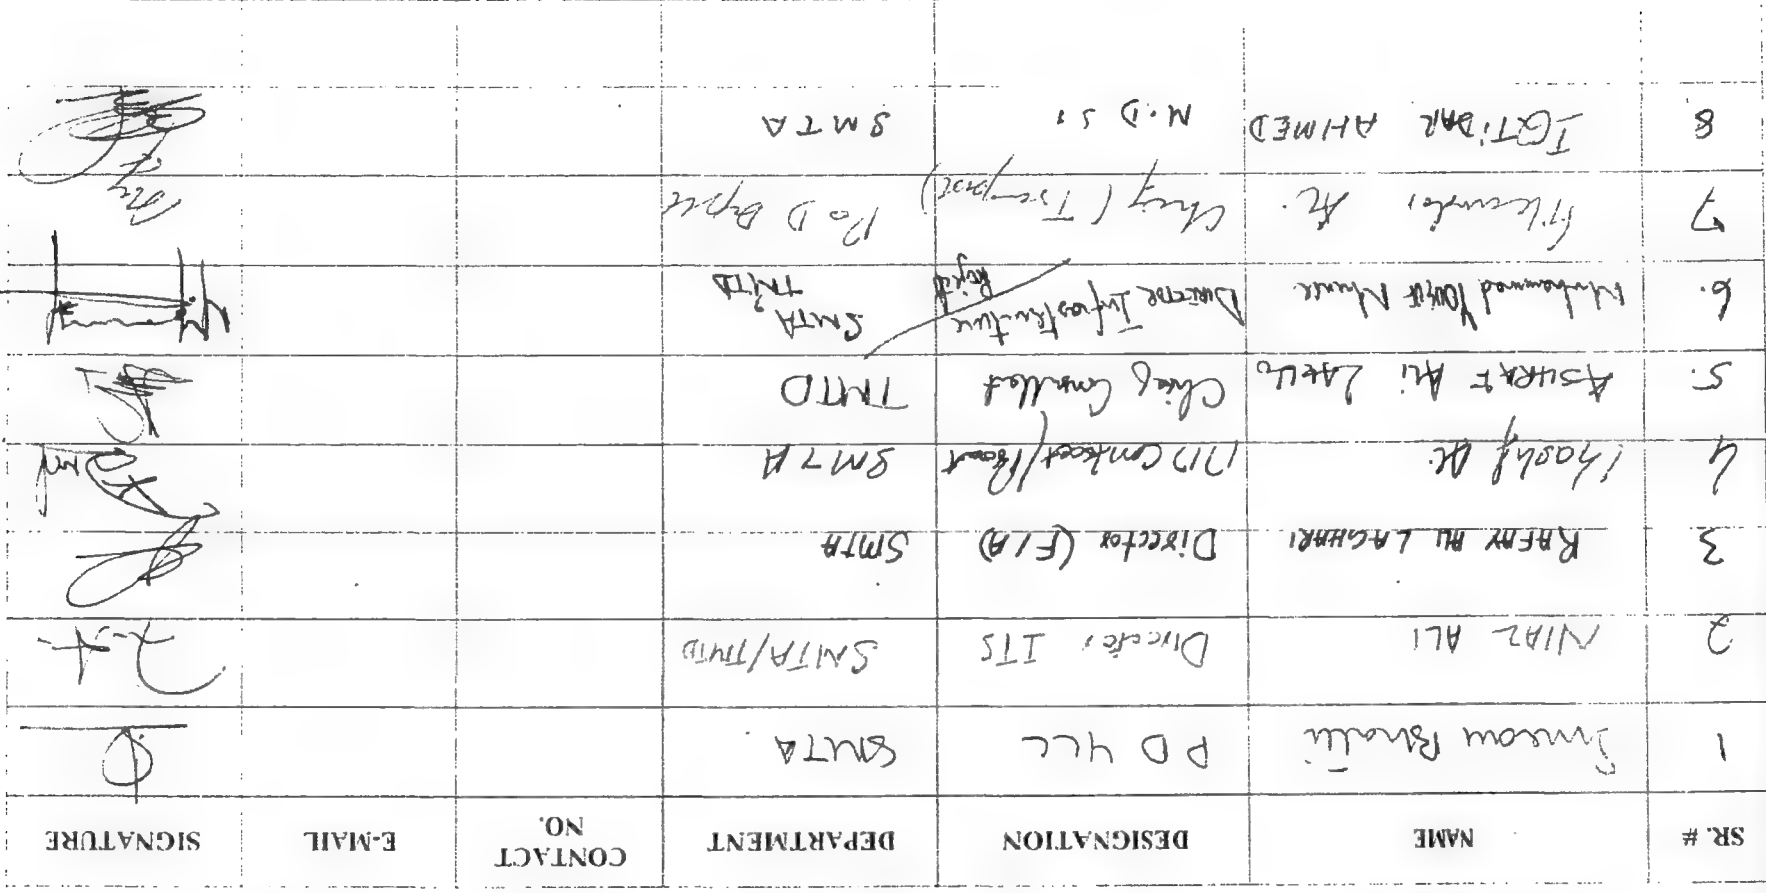 SR. # NAME DESIGNATION DEPARTMENT CONTACT NO. E-MAIL SIGNATURE
1 Imran Bhatti P D YLL SMTA
2 NIAZ ALI Director ITS SMTA/TMTD
3 RAFAY ALI LAGHARI Director (F/A) SMTA
4 Kashif Ali DD Contract/ SMTA
5. ASHRAF ALI Chief TMTD
6. Muhammad Yousif DIRECTOR Infrastructure Project SMTA, TMTD
7 Sikandar Ali Chief (Transport) P&D Deptt
8 IQTIDAR AHMED M.D SI SMTA